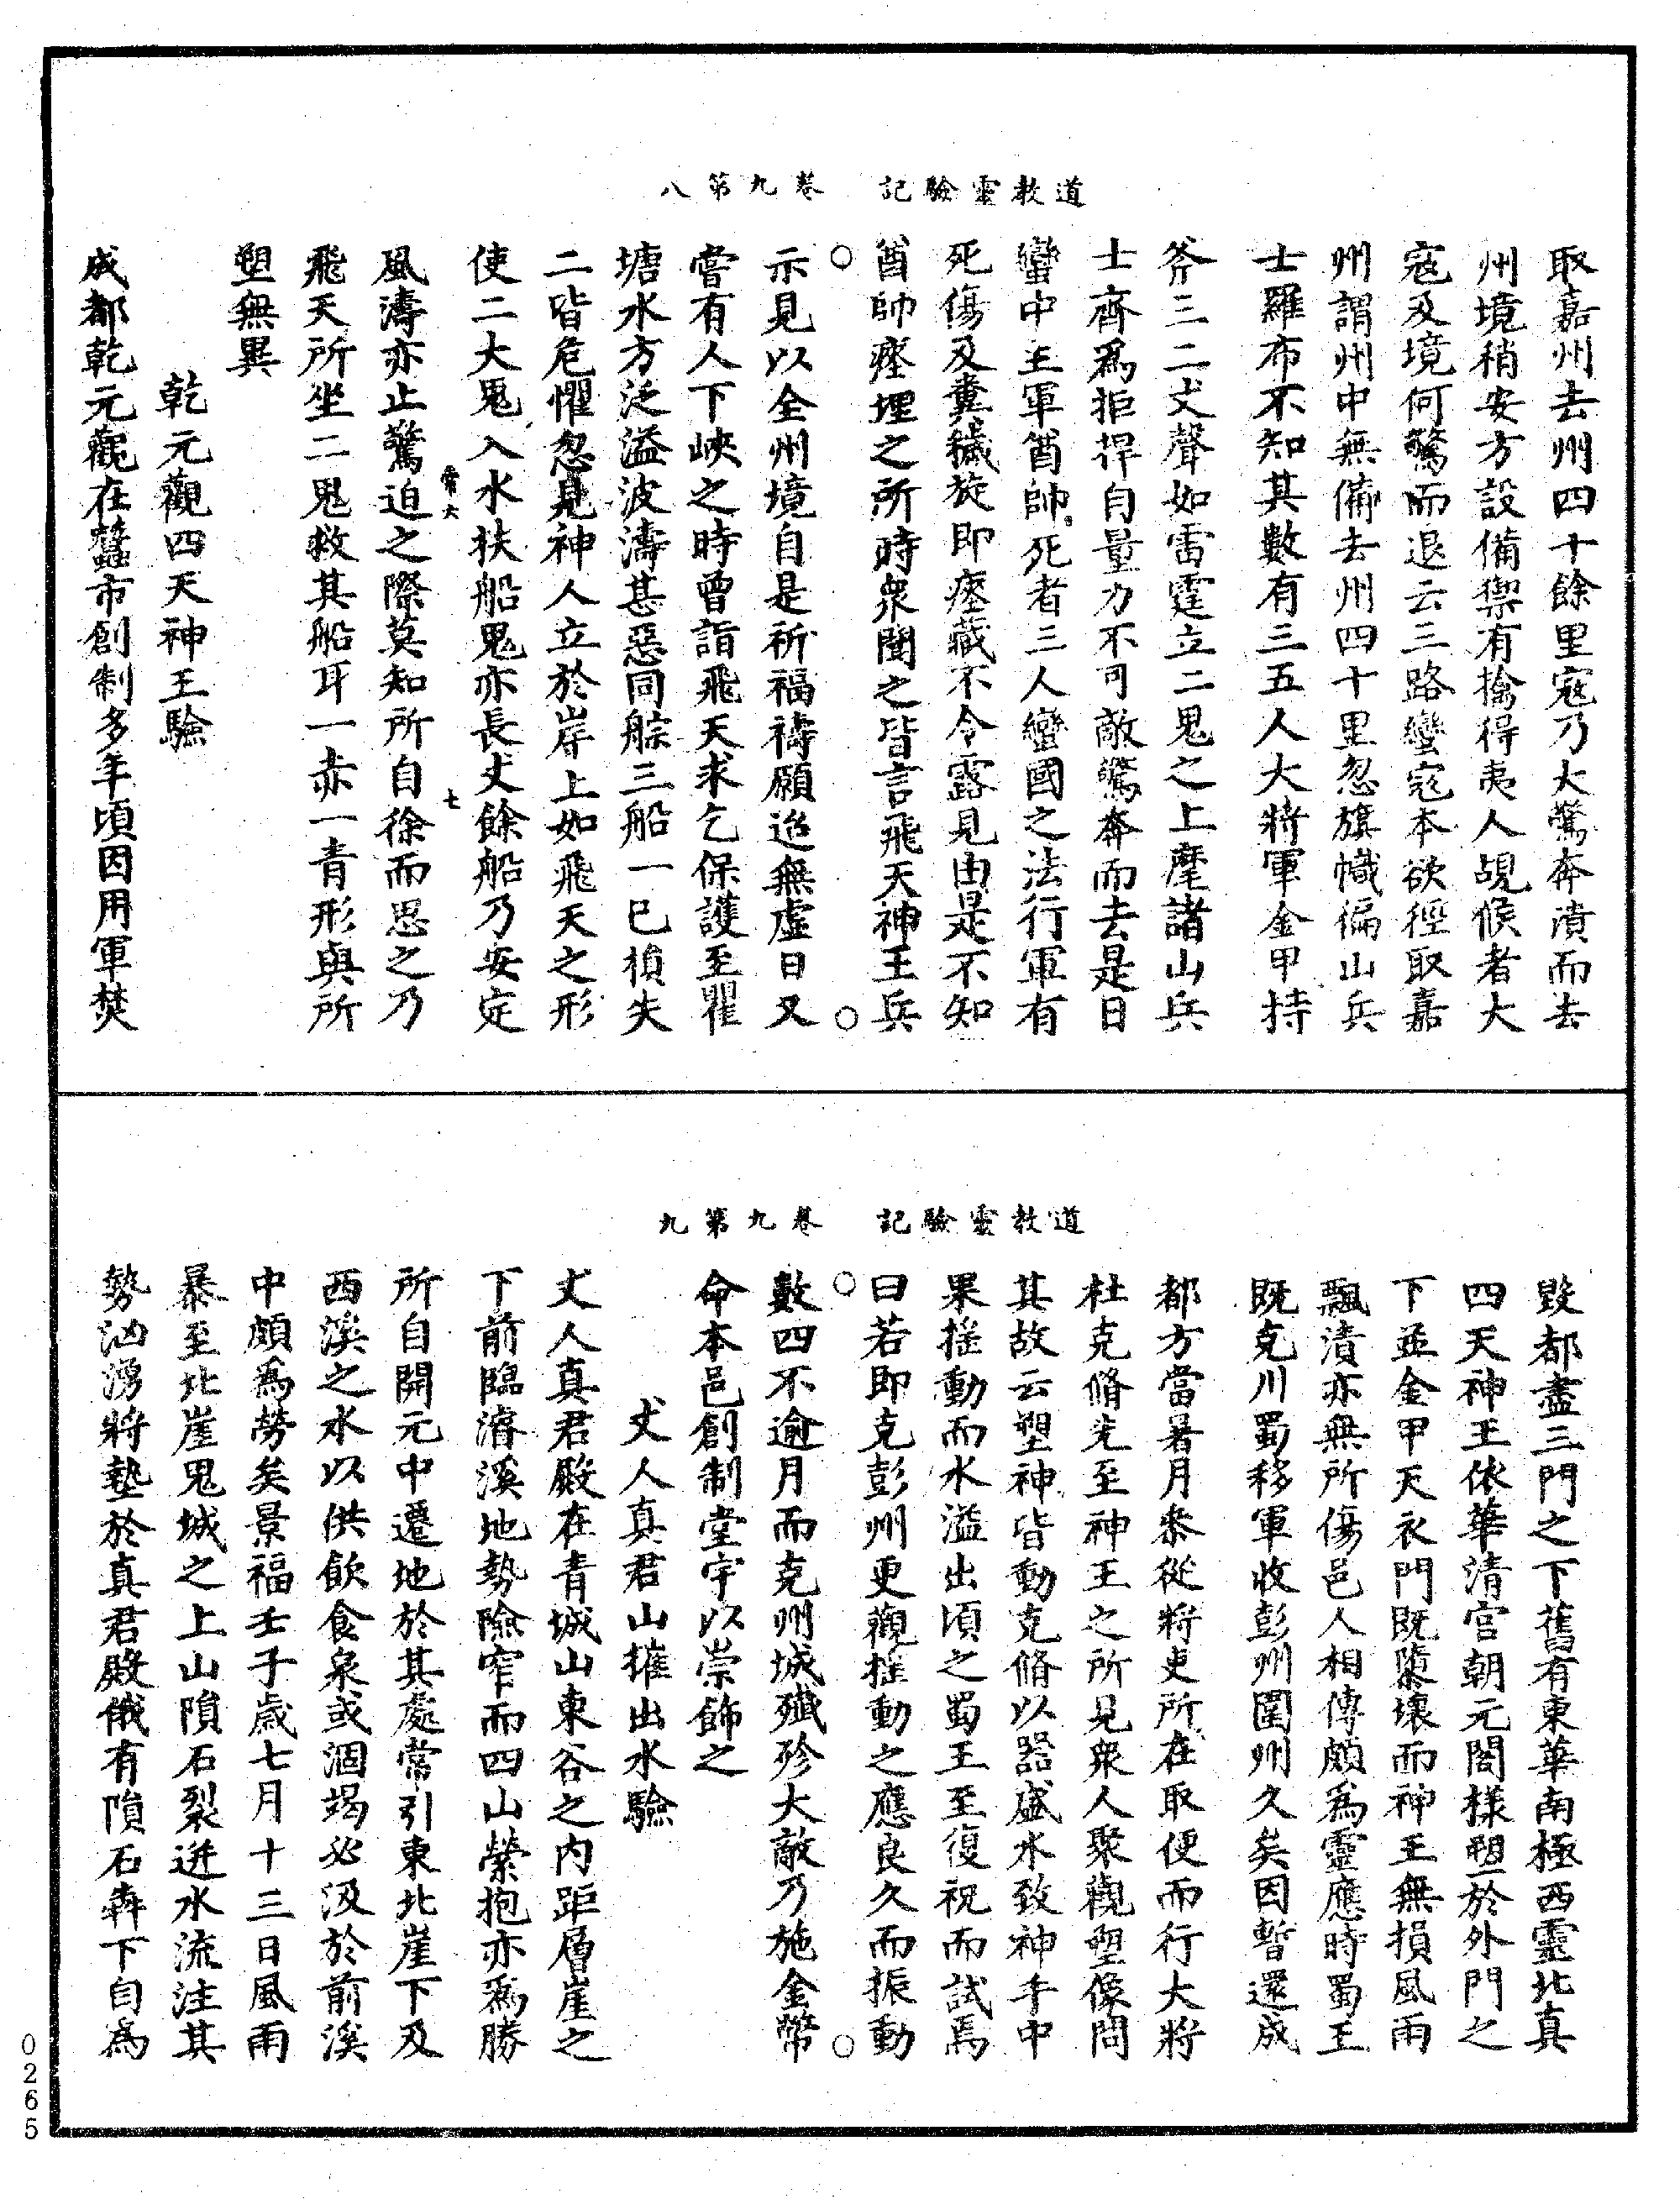 道教靈驗記　卷九第八
取嘉州去州四十餘里寇乃大驚奔潰而去
州境稍安方設備禦有擒得夷人覘候者大
寇及境何驚而退云三路蠻寇本欲徑取嘉
州謂州中無備去州四十里忽旗幟徧山兵
士羅布不知其數有三五人大將軍金甲持
斧三二丈聲如雷霆立二鬼之上麾諸山兵
士齊爲拒捍自量力不可敵驚奔而去是日
蠻中主軍酋帥死者三人蠻國之法行軍有
死傷及糞穢旋即瘞藏不令露見由是不知
酋帥瘞埋之所時衆聞之皆言飛天神王兵
示見以全州境自是祈福禱願迨無虛日又
嘗有人下峽之時曾詣飛天求乞保護至瞿
塘水方泛溢波濤甚惡同艅三船一已損失
二皆危懼忽見神人立於岸上如飛天之形
使二大鬼入水扶船鬼亦長丈餘船乃安定
常六　七
風濤亦止驚迫之際莫知所自徐而思之乃
飛天所坐二鬼救其船耳一赤一青形與所
塑無異
乾元觀四天神王驗
成都乾元觀在蠶市創制多年頃因用軍焚
道教靈驗記　卷九第九
毀都盡三門之下舊有東華南極西靈北真
四天神王依華清宮朝元閣樣塑於外門之
下並金甲天衣門既隳壞而神王無損風雨
飄漬亦無所傷邑人相傳頗爲靈應時蜀王
既克川蜀移軍收彭州圍州久矣因暫還成
都方當暑月叅從將吏所在取便而行大將
杜克脩先至神王之所見衆人聚觀塑像問
其故云塑神皆動克脩以器盛水致神手中
果搖動而水溢出頃之蜀王至復祝而試焉
曰若即克彭州更觀搖動之應良久而振動
數四不逾月而克州城殲殄大敵乃施金幣
命本邑創制堂宇以崇飾之
丈人真君山摧出水驗
丈人真君殿在青城山東谷之内距層崖之
下前臨濬溪地勢險窄而四山縈抱亦爲勝
所自開元中遷地於其處常引東北崖下及
西溪之水以供飲食泉或涸竭必汲於前溪
中頗爲勞矣景福壬子歲七月十三日風雨
暴至北崖鬼城之上山隕石裂迸水流注其
勢洶湧將墊於真君殿俄有隕石犇下自爲
0265